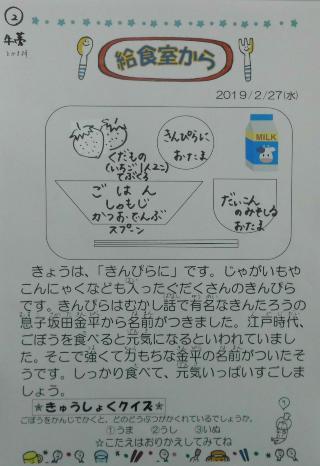 ②
牛蒡
給食室から
2019/2/27(水)
くだもの
(いちご1人2こ)
てぶくろ
きんぴらに
おたま
MILK
ごはん
しゃもじ
かつおでんぶ
スプーン
だいこん
のみそしる
おたま
きょうは、「きんぴらに」です。じゃがいもや
こんにゃくなども入ったぐだくさんのきんぴら
です。きんぴらはむかし話で有名なきんたろうの
息子坂田金平から名前がつきました。江戸時代、
ごぼうを食べると元気になるといわれていまし
た。そこで強くて力もちな金平の名前がついたそ
うです。しっかり食べて、元気いっぱいすごしま
しょう。
★きゅうしょくクイズ★
ごぼうをかんじでかくと、どのどうぶつがかくれているでしょうか。
①うま ②うし ③いぬ
☆こたえはおりかえしてみてね